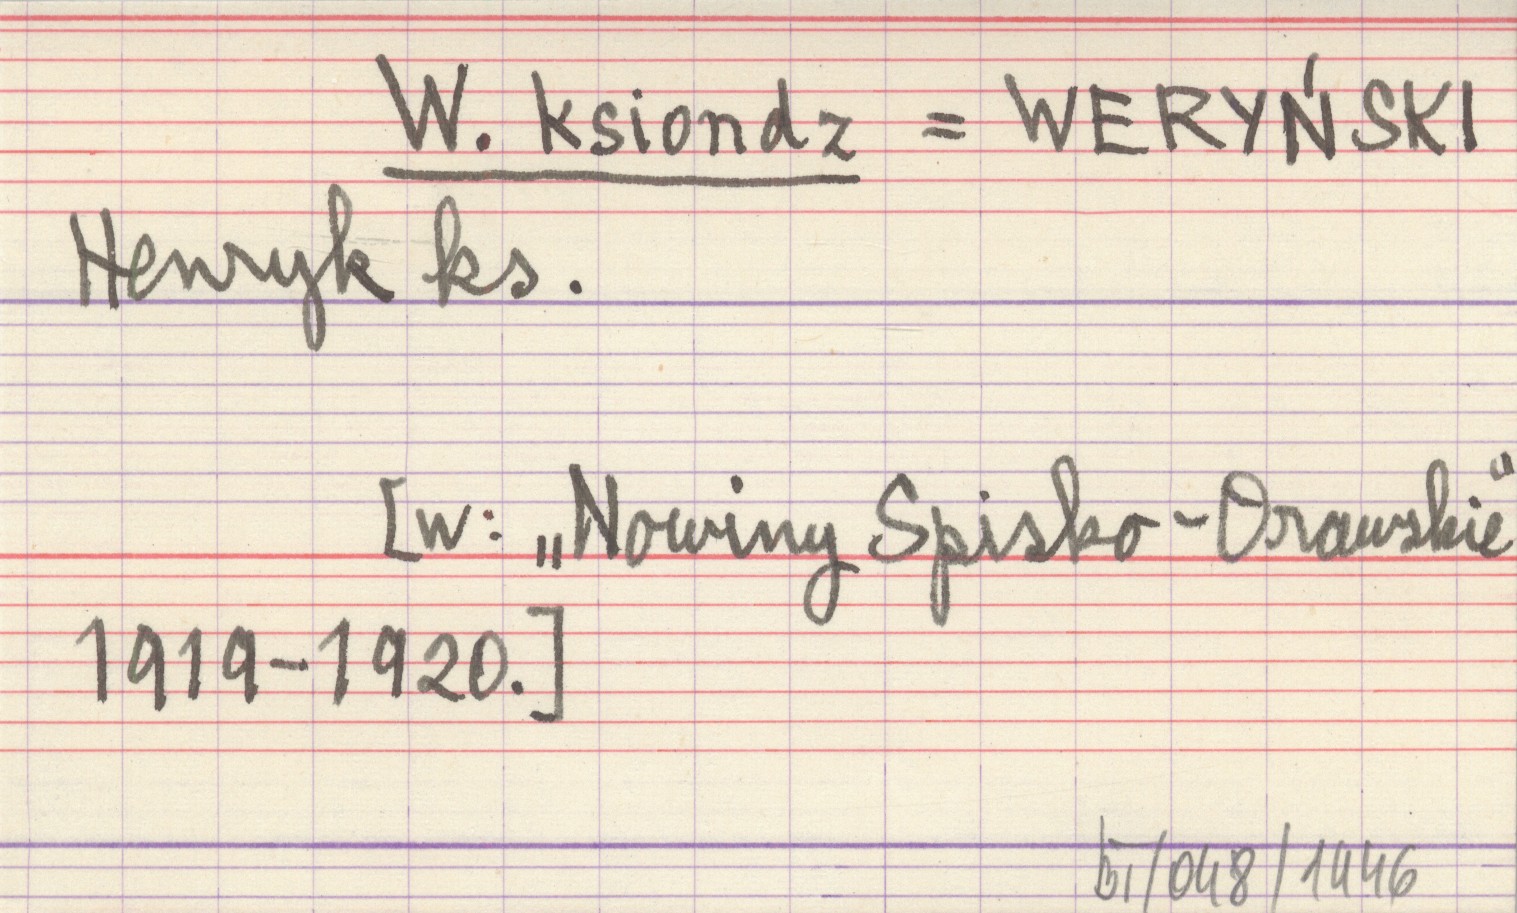 W. ksiondz = WERYŃSKI
Henryk ks.
[w: „Nowiny Spisko-Orawskie“
1919-1920.]
/048/1446